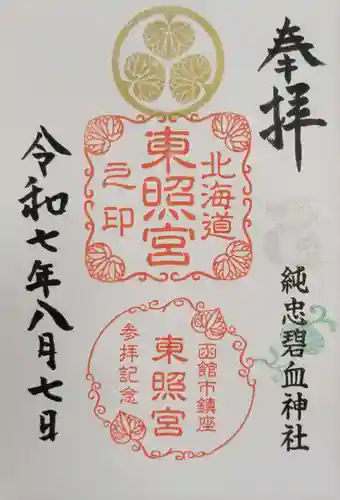 奉拝
純忠碧血神社
北海道
東照宮
之印
函館市鎮座
東照宮
参拝記念
令和七年八月七日